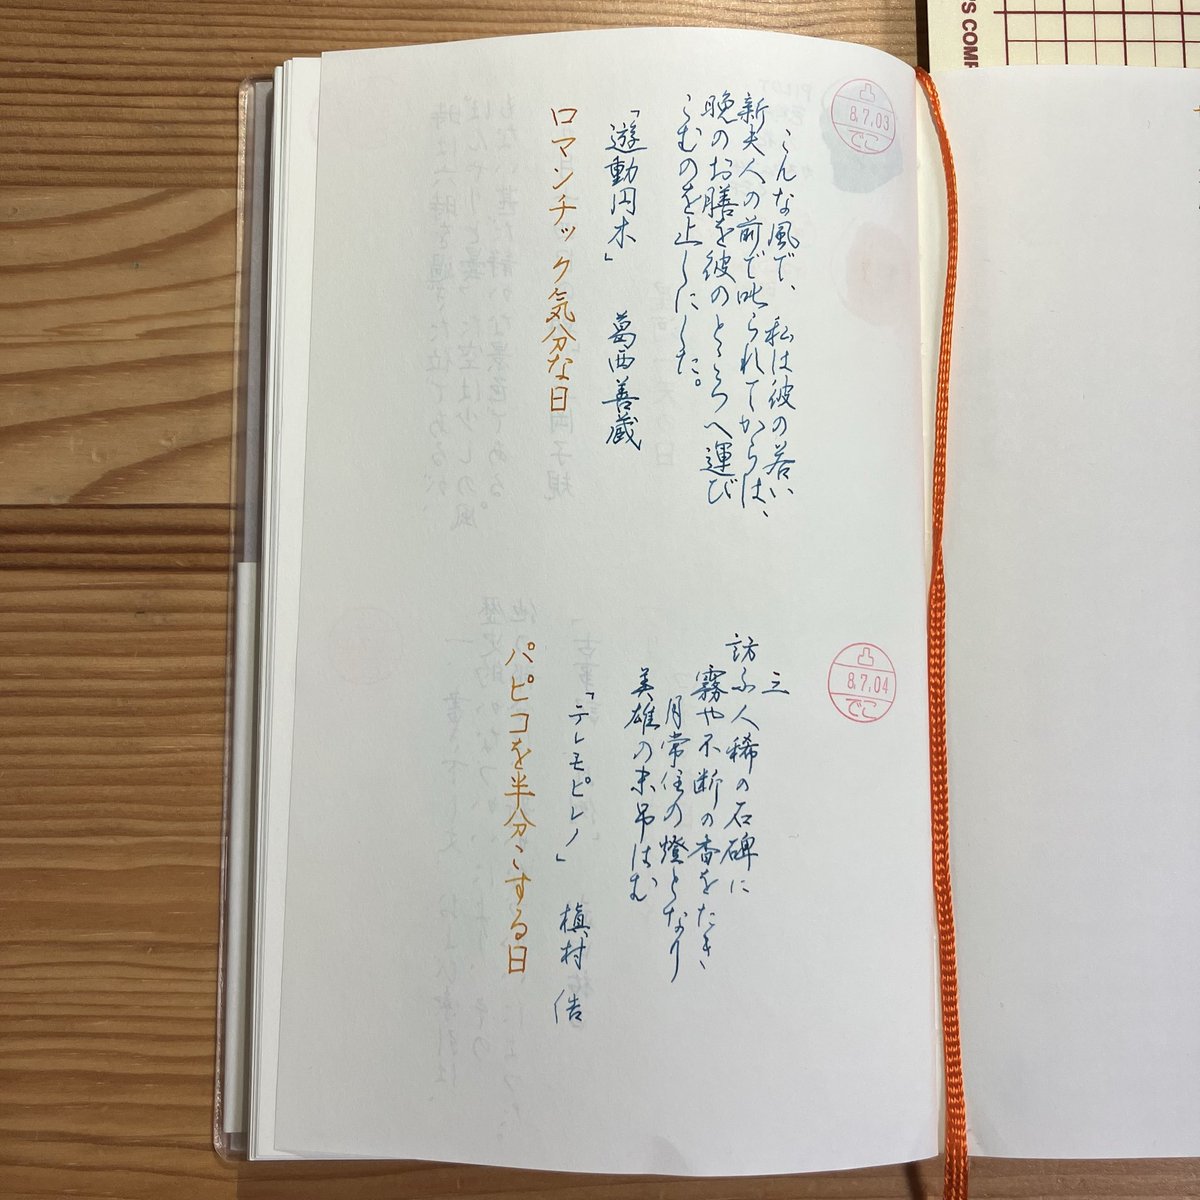 凸
8.7.03
でこ
こんな風で、私は彼の若い、
新夫人の前で叱られてからは、
晩のお膳を彼のところへ運び
こむのを止しにした。
「遊動円木」 葛西善蔵
ロマンチック気分な日
凸
8.7.04
でこ
三
訪ふ人稀の石碑に
霧や不断の香をたき、
月常住の燈となり
英雄の末弔はむ
「テレモピレノ」 槇村 浩
パピコを半分こする日
'S COMP